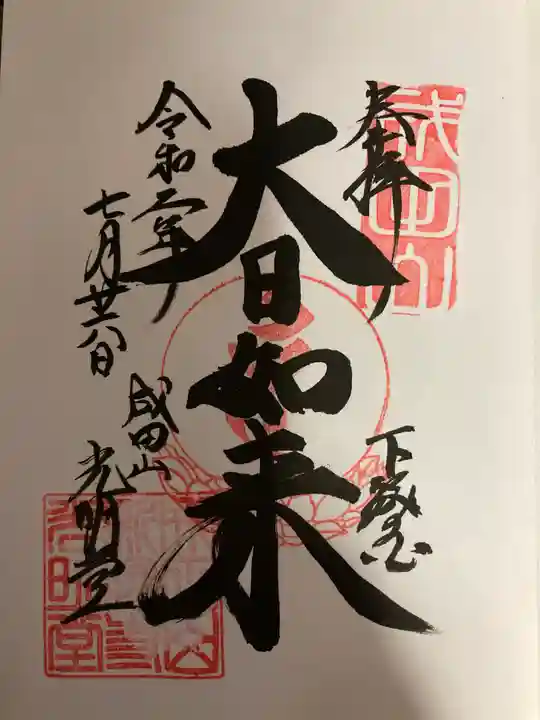 奉拝
下総国
大日如来
令和二年
七月廿六日
成田山
光明堂
成田山